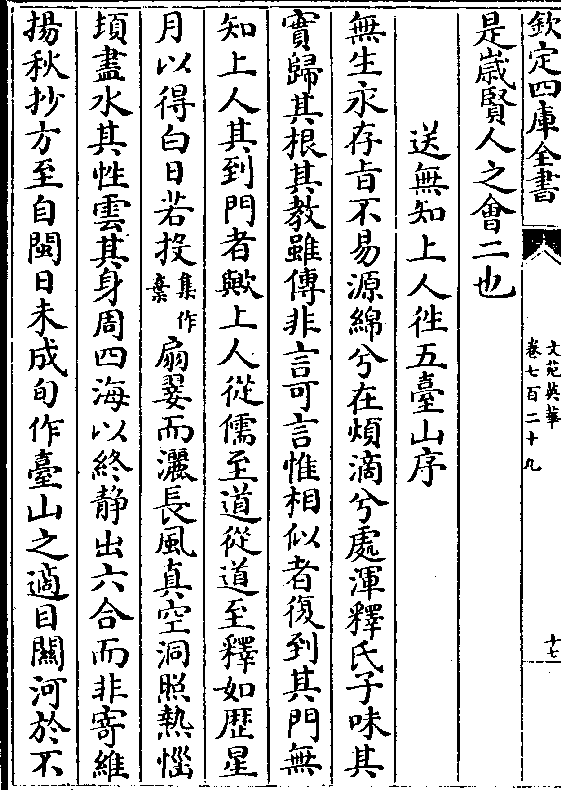 欽定四庫全書
文苑英華
卷七百二十九
十七
是嵗賢人之會二也
送無知上人徃五臺山序
無生永存旨不易源綿兮在煩滴兮處渾釋氏子味其
實歸其根其教雖傳非言可言惟相似者復到其門無
知上人其到門者歟上人從儒至道從道至釋如歴星
月以得白日若投集作棄扇翣而灑長風真空洞照熱惱
頓盡水其性雲其身周四海以終静出六合而非寄維
揚秋抄方至自閩日未成旬作臺山之適目關河於不